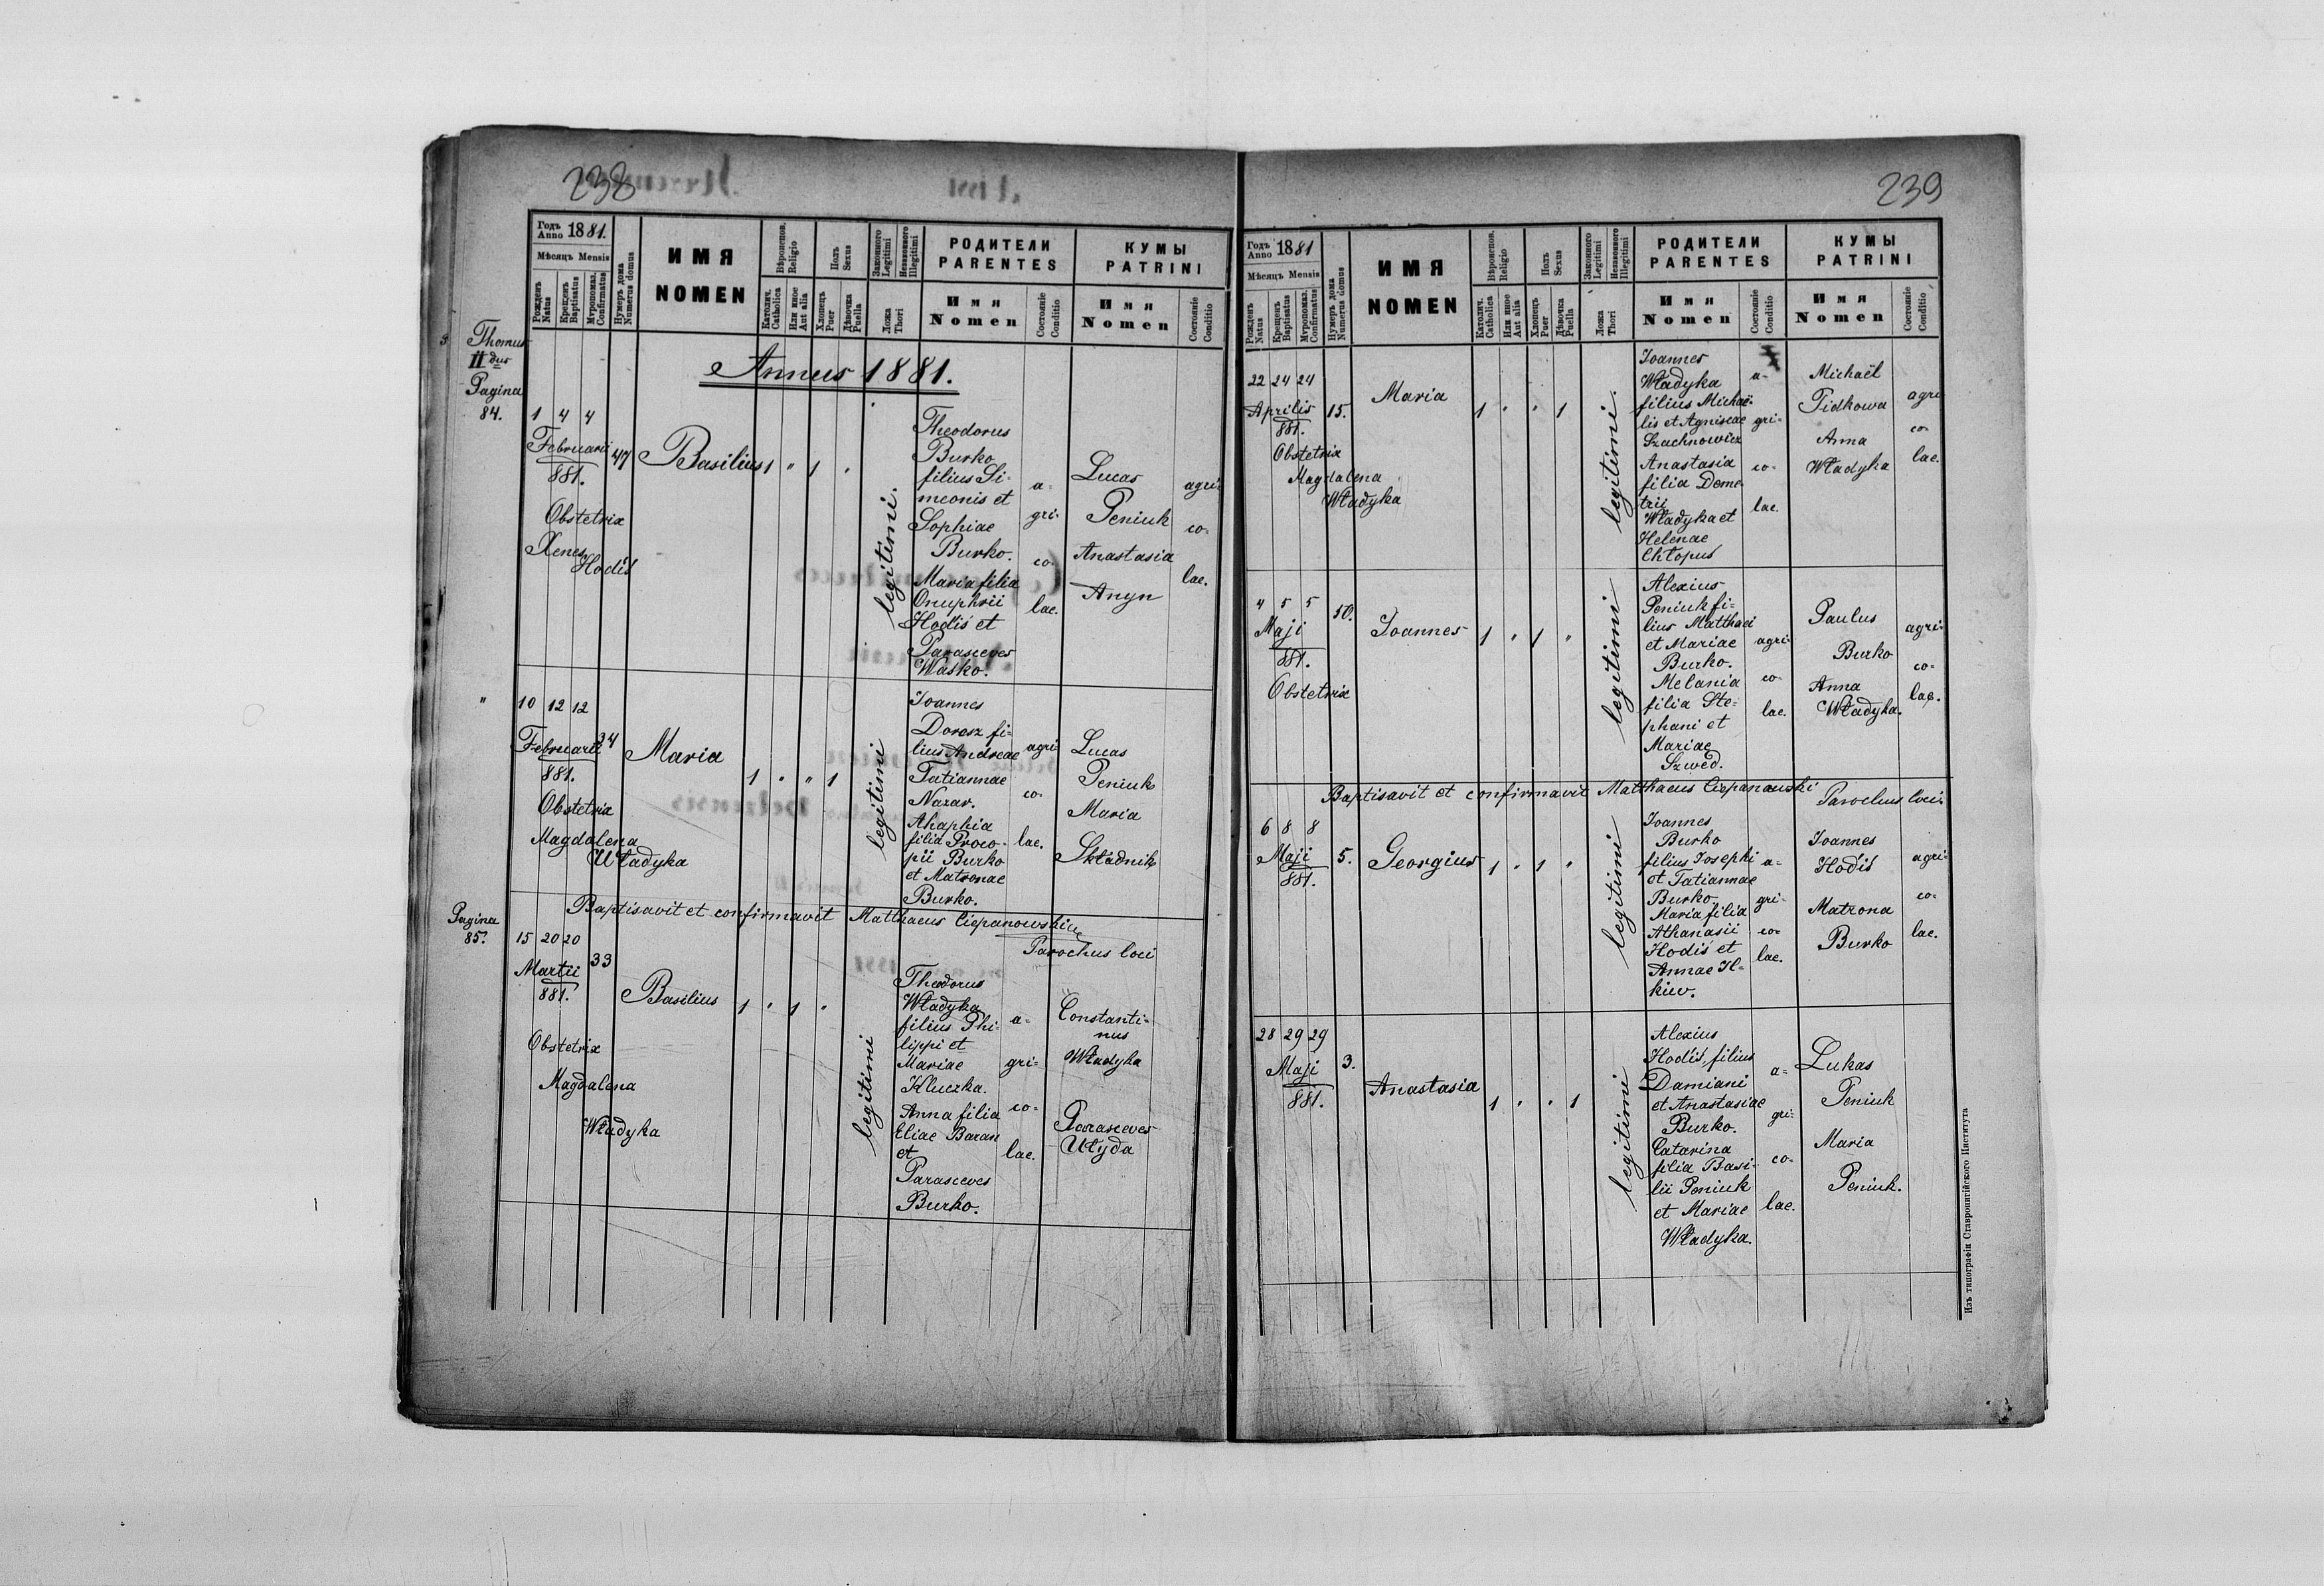 238
Годъ Anno 1881.
Мѣсяцъ Mensis
Рожденъ Natus
Крещенъ Baptisatus
Мѵропомаз. Confirmatus
Нумеръ дома Numerus domus
ИМЯ
NOMEN
Вѣроиспов. Religio
Католич. Catholica
Или иное Aut alia
Полъ Sexus
Хлопецъ Puer
Дѣвочка Puella
Законного Legitimi
Незаконного Illegitimi
Ложа Thori
РОДИТЕЛИ
PARENTES
Имя
Nomen
Состояніе Conditio
КУМЫ
PATRINI
Имя
Nomen
Состояніе Conditio
Thomus
II dus
Pagina
84.
Annus 1881.
1 4 4
Februarii
881.
47
Obstetrix
Xenes
Hodiś
Basilius
1 " 1 "
legitimi.
Theodorus
Burko
filius Si-
meonis et
Sophiae
Burko.
Maria filia
Onuphrii
Hodiś et
Parasceves
Wasko.
a-
gri-
co-
lae.
Lucas
Peniuk
Anastasia
Anyn
agri-
co-
lae.
"
10 12 12
Februarii
881.
34
Obstetrix
Magdalena
Władyka
Maria
1 " " 1
legitimi
Joannes
Dorosz fi-
lius Andreae
Tatiannae
Nazar.
Ahaphia
filia Proco-
pii Burko
et Matronae
Burko.
agri-
co-
lae.
Lucas
Peniuk
Maria
Składnik
Baptisavit et confirmavit Matthaeus Ciepanowski
Parochus loci
Pagina
85.
15 20 20
Martii
881.
33
Obstetrix
Magdalena
Władyka
Basilius
1 " 1 "
legitimi
Theodorus
Władyka
filius Phi-
lippi et
Mariae
Kluczka.
Anna filia
Eliae Baran
et
Parasceves
Burko.
a-
gri-
co-
lae.
Constanti-
nus
Władyka
Parasceves
Ułyda
239
Годъ Anno 1881
Мѣсяцъ Mensis
Рожденъ Natus
Крещенъ Baptisatus
Мѵропомаз. Confirmatus
Нумеръ дома Numerus domus
ИМЯ
NOMEN
Вѣроиспов. Religio
Католич. Catholica
Или иное Aut alia
Полъ Sexus
Хлопецъ Puer
Дѣвочка Puella
Законного Legitimi
Незаконного Illegitimi
Ложа Thori
РОДИТЕЛИ
PARENTES
Имя
Nomen
Состояніе Conditio
КУМЫ
PATRINI
Имя
Nomen
Состояніе Conditio
22 24 24
Aprilis
881.
15.
Obstetrix
Magdalena
Władyka
Maria
1 " " 1
legitimi.
Joannes
Władyka
filius Michaë-
lis et Agnisae
Szachnowicz
Anastasia
filia Deme
trii
Władyka et
Helenae
Chłopus
a-
gri-
co-
lae.
Michaël
Pidkowa
Anna
Władyka
agri
co-
lae.
4 5 5
Maji
881.
50.
Obstetrix
Joannes
1 " 1 "
legitimi
Alexius
Peniuk fi-
lius Matthaei
et Mariae
Burko.
Melania
filia Ste-
phani et
Mariae
Szwed.
agri-
co-
lae.
Paulus
Burko
Anna
Władyka.
agri-
co-
lae.
Baptisavit et confirmavit Matthaeus Ciepanowski Parochus loci
6 8 8
Maji
881.
5.
Georgius
1 " 1 "
legitimi
Joannes
Burko
filius Josephi
et Tatiannae
Burko
Maria filia
Athanasii
Hodiś et
Annae Il-
kiw.
a-
gri-
co-
lae.
Joannes
Hodiś
Matrona
Burko
agri-
co-
lae.
28 29 29
Maji
881.
3.
Anastasia
1 " " 1
legitimi
Alexius
Hodiś, filius
Damiani
et Anastasiae
Burko.
Catarina
filia Basi-
lii Peniuk
et Mariae
Władyka.
a-
gri-
co-
lae.
Lukas
Peniuk
Maria
Peniuk.
Изъ типографіи Ставропигійского Института